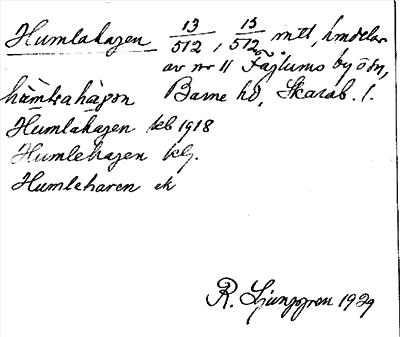 Humlahagen 13/512, 13/512 mtl, hmdelar
av nr 11 Fåglums by o sn,
Barne hd, Skarab. l.
Humlahagen kb 1918
Humlehagen klj.
Humleharen ek
R. Ljunggren 1929